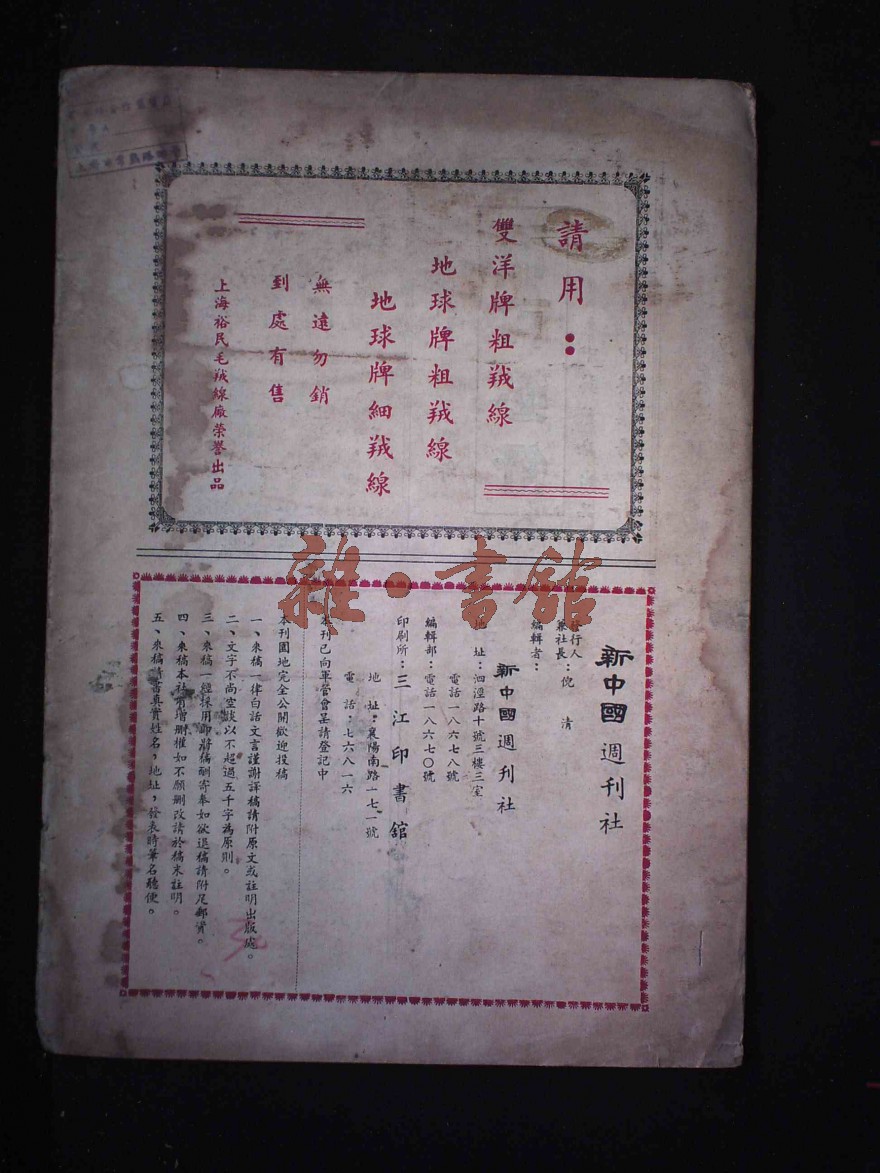 請用：
雙洋牌粗羢線
地球牌粗羢線
地球牌細羢線
無遠勿銷
到處有售
上海裕民毛羢線廠榮譽出品
新中國週刊社
發行人
兼社長：倪清
編輯者：
新中國週刊社
地址：泗涇路十號三樓三室
電話一八六七八號
編輯部：電話一八六七〇號
印刷所：三江印書舘
地址：襄陽南路一七一號
電話：七六八一六
本刊已向軍管會呈請登記中
本刊園地完全公開歡迎投稿
一、來稿一律白話文言謹謝譯稿請附原文或註明出版處。
二、文字不尚空談以不超過五千字為原則。
三、來稿一經採用即將稿酬寄奉如欲退稿請附足郵資。
四、來稿本社有增删權如不願删改請於稿末註明。
五、來稿請書真實姓名，地址，發表時筆名聽便。
雜·書舘